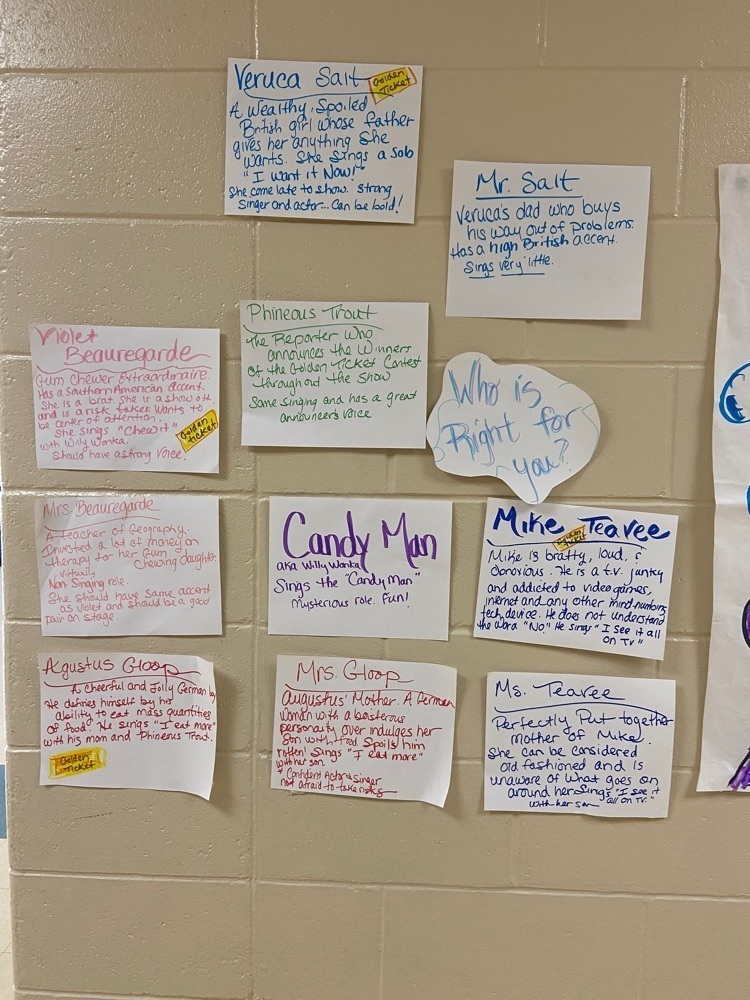 Veruca Salt
Golden
Ticket
A Wealthy, Spoiled
British girl whose father
gives her anything she
wants. She sings a solo
"I want it Now!"
She come late to show. Strong
Singer and actor... Can be bold!
Mr. Salt
Veruca's dad who buys
his way out of problems.
Has a high British accent.
Sings very little.
Phineous Trout
The Reporter Who
announces the Winners
of the Golden Ticket Contest
throughout the show
Some singing and has a great
announcers voice
Violet
Beauregarde
Gum Chewer Extraordinaire
Has a Southern American accent.
She is a brat. She is a show off
and is a risk taker. Wants to
be center of attention.
She Sings "Chew It"
with Willy Wonka.
Should have a strong voice!
Golden
ticket
Who is
Right for
you?
Mrs. Beauregarde
A teacher of Geography.
Invested a lot of money on
therapy for her Gum
Chewing daughter.
virtually
Non Singing role.
She should have same accent
as violet and should be a good
pair on stage.
Candy Man
aka Willy Wonka
Sings the "Candy man"
mysterious role. Fun!
Mike Teavee
Golden
Ticket
Mike is bratty, loud, &
obnoxious. He is a t.v. junky
and addicted to video games,
internet and any other mind-numbing
tech device. He does not understand
the word "No" He sings "I see it all
on TV"
Agustus Gloop
A cheerful and Jolly German boy
He defines himself by his
ability to eat mass quantities
of food. He Sings "I eat more"
with his mom and Phineous Trout.
Golden
Ticket
Mrs. Gloop
Augustus' Mother. A German
woman with a boisterous
personality over indulges her
son with food Spoils him
rotten! Sings "I eat more"
with her son.
* Confident Actor & Singer
not afraid to take risks
Ms. Teavee
Perfectly Put together
mother of Mike.
She can be considered
old fashioned and is
unaware of what goes on
around her Sings "I see it
all on TV."
with her son